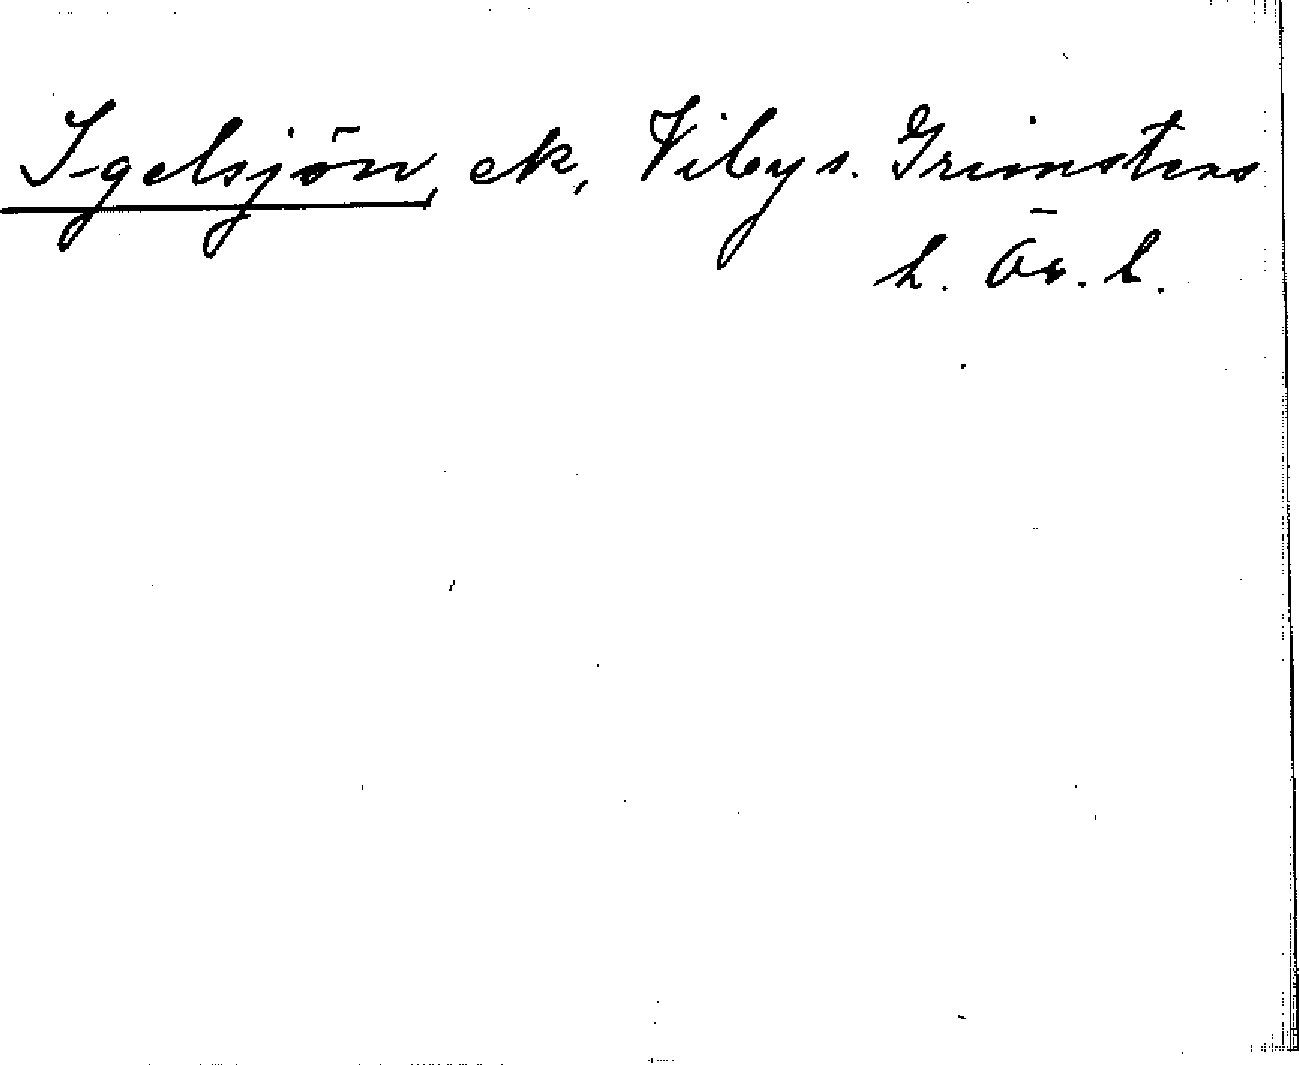 Igelsjön, ek, Viby s. Grimstens
h. Ör. l.